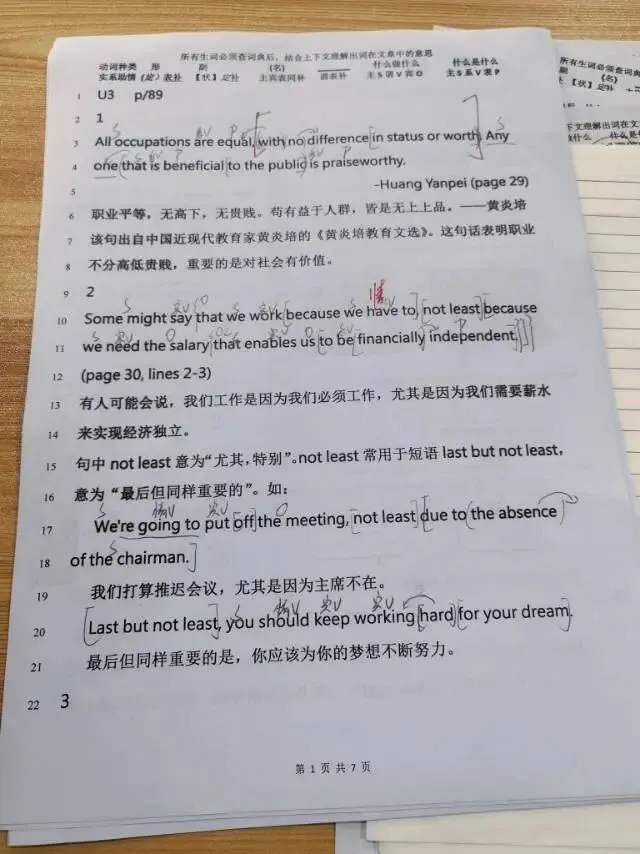 所有生词必须查词典后，结合上下文理解出词在文章中的意思
动词种类 形 副 (名) 什么做什么 什么是什么
实系助情 (定) 表补 【状】定补 主宾表同补 谓表补 主 S 谓 V 宾 O 主 S 系 V 表 P
1 U3 p/89
2 1
3 All occupations are equal, with no difference in status or worth. Any
4 one that is beneficial to the public is praiseworthy.
5 -Huang Yanpei (page 29)
6 职业平等，无高下，无贵贱。苟有益于人群，皆是无上上品。——黄炎培
7 该句出自中国近现代教育家黄炎培的《黄炎培教育文选》。这句话表明职业
8 不分高低贵贱，重要的是对社会有价值。
9 2
10 Some might say that we work because we have to, not least because
11 we need the salary that enables us to be financially independent.
12 (page 30, lines 2-3)
13 有人可能会说，我们工作是因为我们必须工作，尤其是因为我们需要薪水
14 来实现经济独立。
15 句中 not least 意为“尤其，特别”。not least 常用于短语 last but not least，
16 意为“最后但同样重要的”。如：
17 We're going to put off the meeting, not least due to the absence
18 of the chairman.
19 我们打算推迟会议，尤其是因为主席不在。
20 Last but not least, you should keep working hard for your dream.
21 最后但同样重要的是，你应该为你的梦想不断努力。
22 3
第 1 页 共 7 页